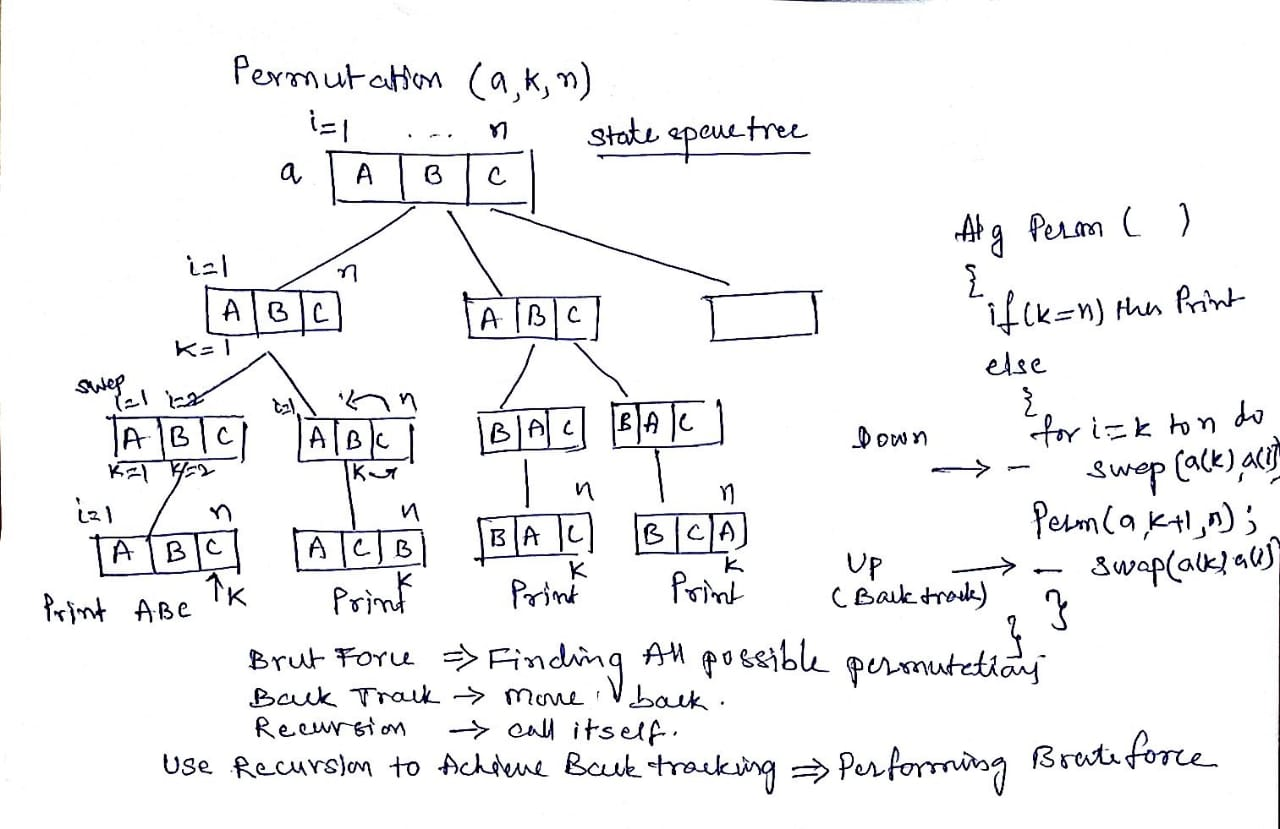 Permutation (a,k,n)
i=1 .... n
state space tree
a A B C
i=1 n
A B C
K=1
A B C
swep
i=1 i=2
A B C
K=1 K=2
i=1 n
A B C
n
A B C
B A C
B A C
i=1 n
A B C
↑K
Print ABC
n
A C B
K
Print
n
B A C
K
Print
n
B C A
K
Print
Alg Perm ( )
{
if (k=n) then Print
else
{
for i=k to n do
Down → - swep (a(k), a(i)
Perm(a, k+1, n);
UP → - swap(a(k) a(i)
(Back track)
}
}
Brut Force ⇒ Finding All possible permutetions
Back Track → move back.
Recursion → call itself.
Use Recursion to Achieve Back tracking ⇒ Performing Brute force